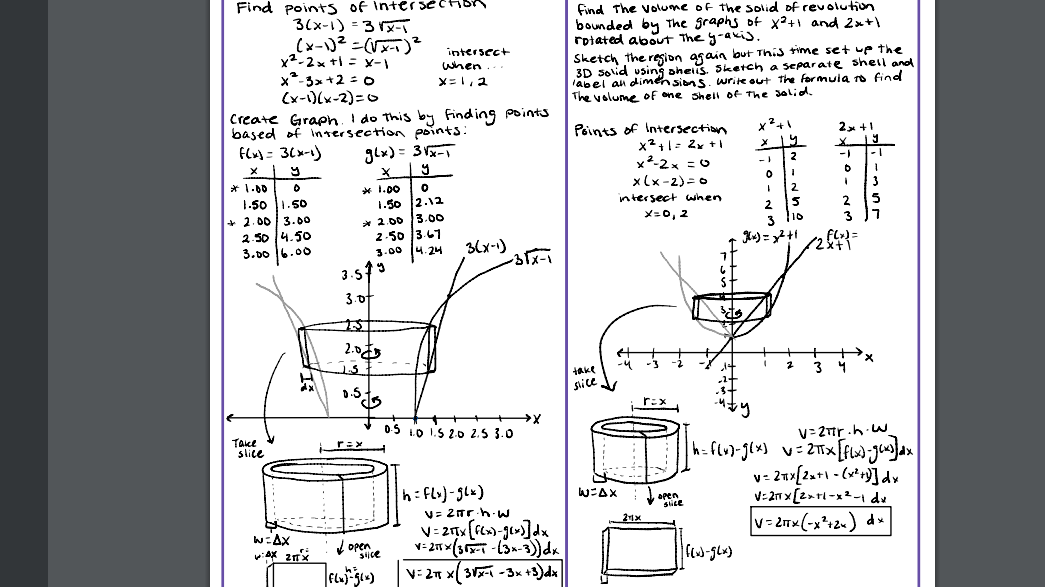 Find points of intersection
3(x-1) = 3√x-1
(x-1)² = (√x-1)²
x²-2x+1 = x-1
x²-3x+2 = 0
(x-1)(x-2)=0
intersect
when...
x=1,2
Create Graph. I do this by finding points
based of intersection points:
f(x) = 3(x-1)
x y
* 1.00 0
1.50 1.50
* 2.00 3.00
2.50 4.50
3.00 6.00
g(x) = 3√x-1
x y
* 1.00 0
1.50 2.12
* 2.00 3.00
2.50 3.67
3.00 4.24
3(x-1)
3√x-1
y
3.5
3.0
2.5
2.0
1.5
0.5
dx
0.5 1.0 1.5 2.0 2.5 3.0
x
Take
slice
r=x
h=f(x)-g(x)
w=Δx
open
slice
V=2πr·h·w
V=2πx[f(x)-g(x)]dx
V=2πx(3√x-1 -(3x-3))dx
V=2πx(3√x-1 -3x+3)dx
w=Δx
2πx
r=
h=
f(x)-g(x)
find the volume of the solid of revolution
bounded by the graphs of x²+1 and 2x+1
rotated about the y-axis.
Sketch the region again but this time set up the
3D solid using shells. Sketch a separate shell and
label all dimensions. write out the formula to find
the volume of one shell of the solid.
Points of Intersection
x²+1= 2x+1
x²-2x = 0
x(x-2)=0
intersect when
x=0,2
x²+1
x y
-1 2
0 1
1 2
2 5
3 10
2x+1
x y
-1 -1
0 1
1 3
2 5
3 7
g(x)=x²+1
f(x)=
2x+1
7
6
5
4
3
-4 -3 -2 -1 1 2 3 4
x
-1
-2
-3
-4
y
take
slice
r=x
h=f(x)-g(x)
w=Δx
open
slice
2πx
f(x)-g(x)
V=2πr·h·w
V=2πx[f(x)-g(x)]dx
V=2πx[2x+1-(x²+1)]dx
V=2πx[2x+1-x²-1 dx
V=2πx(-x²+2x) dx